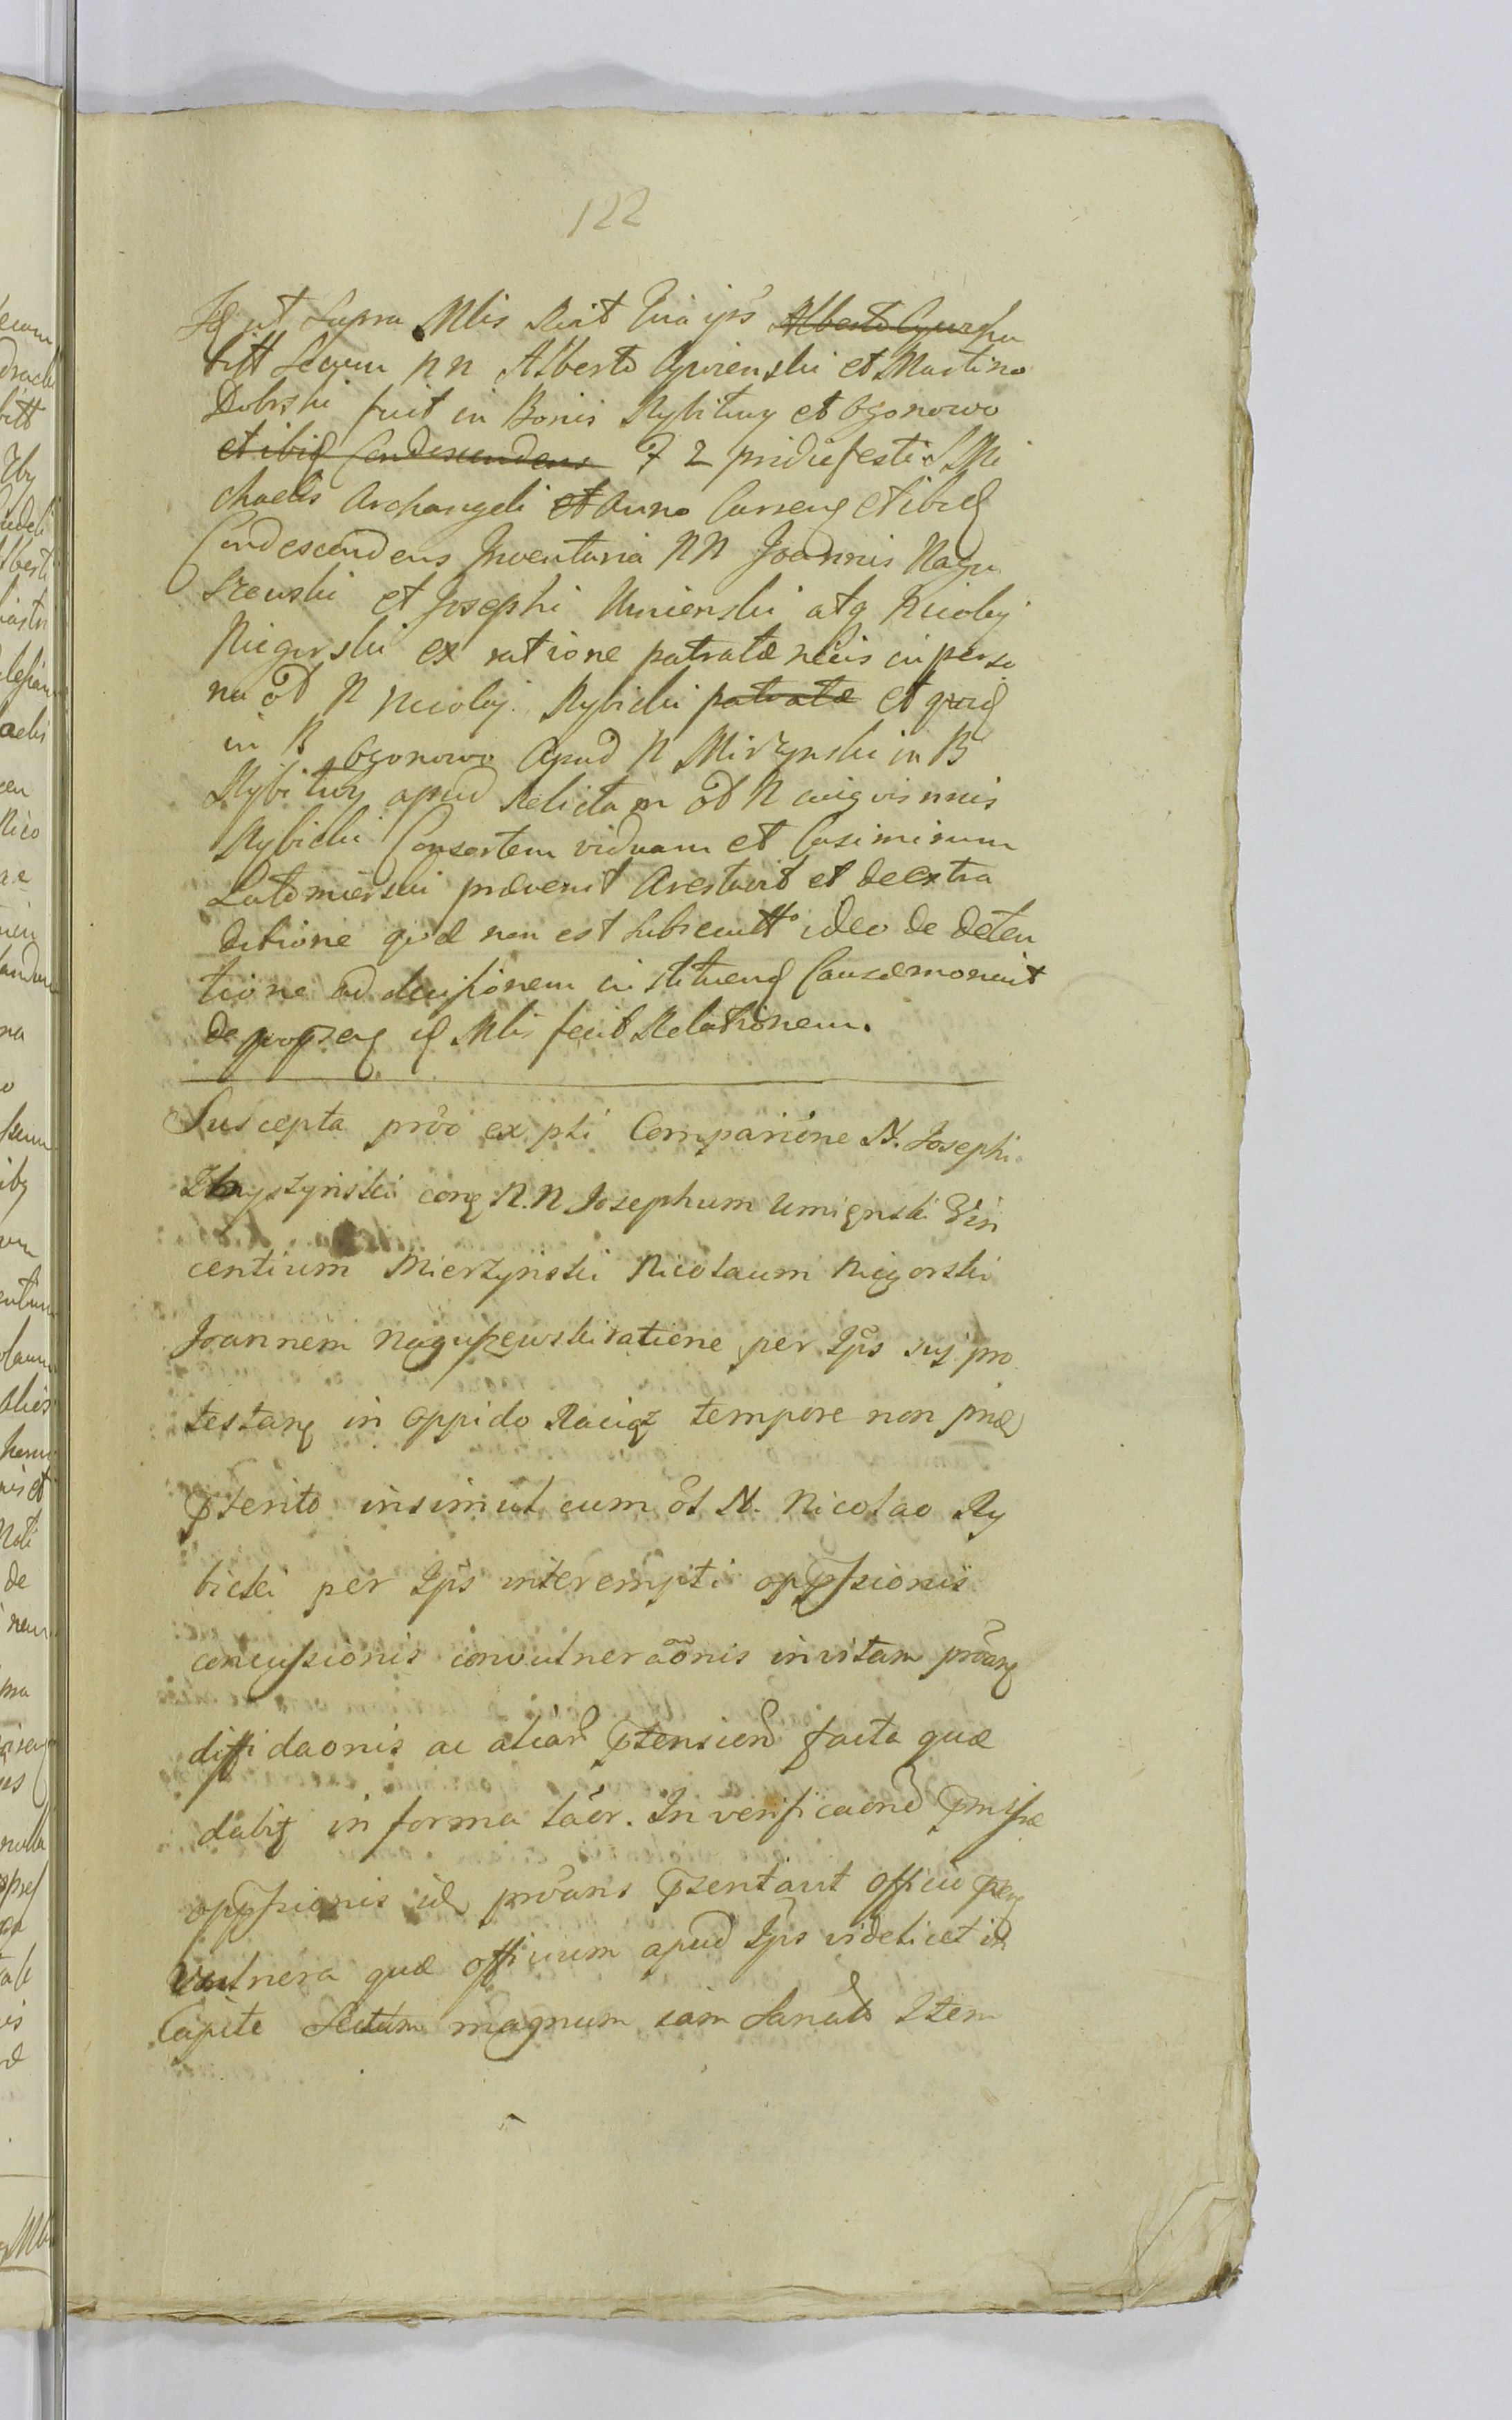 122
Id ut supra Mlis Recit Qia ips Alberto Cywshu
bitt secum NN Alberto Cywienski et Martino
Dobrski fuit in Bonis Rybitwy et Ogonowo
et ibid Condescendens F 2 pridie festi S Mi
chaelis Archangeli et Anno Currenq et ibid
Condescendens Inventaria NN Joannis Nagu
szewski et Josephi Umienski atq Nicolaj
Niegorski ex ratione patratæ necis in perso
na od N Nicolaj Rybicki patratæ et quid
in B Ogonowo apud N Mirzynski in B
Rybitwy apud Relictam od N
Rybicki Consortem viduam et Casimirum
Lutomierski prævenit Arestavit et de extra
ditione quod non est subsecutto ideo de deten
tione ad decisionem instituend Causæ monuit
de id Mlis fecit Relationem.
Suscepta prôo ex pti Comparitione N. Josephi
Zbyszynski conq N.N Josephum Umięnski Vin
centium Mierzynski Nicolaum Niegorski
Joannem Naguszewski ratione per Ips suj pro
testanq in oppido Raciąz tempore non præ
pterito insimul cum ôl N. Nicolao Ry
bicki per Ips interempti oppssionis
concussionis convulneraõnis invitam prôanq
diffidaonis ac aliar ptension facta quæ
dabit in forma laêr. In verificaône pmissæ
oppssionis id prôans psentavit officio pnq
vulnera quæ officium apud Ips videlicet in
Capite Sectum magnum iam Sanat Item